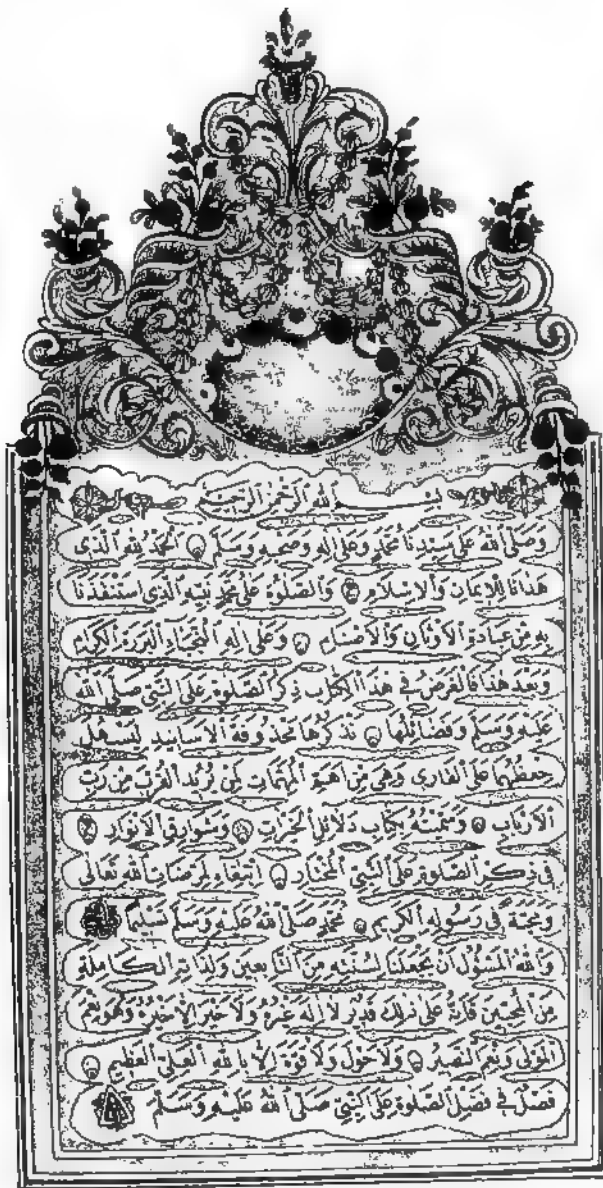 بسم الله الرحمن الرحيم
وَصَلَّى اللهُ عَلَى سَيِّدِنَا مُحَمَّدٍ وَعَلَى اٰلِهِ وَصَحْبِهِ وَسَلَّمَ اَلْحَمْدُ لِلّٰهِ الَّذِى
هَدَانَا لِلْاِيمَانِ وَالْاِسْلَامِ وَالصَّلٰوةُ عَلَى مُحَمَّدٍ نَبِيِّهِ الَّذِى اسْتَنْقَذَنَا
بِهِ مِنْ عِبَادَةِ الْاَوْثَانِ وَالْاَصْنَامِ وَعَلَى اٰلِهِ النُّجَبَاءِ الْبَرَرَةِ الْكِرَامِ
وَبَعْدَ هٰذَا فَالْغَرَضُ فِى هٰذَا الْكِتَابِ ذِكْرُ الصَّلٰوةِ عَلَى النَّبِىِّ صَلَّى اللهُ
عَلَيْهِ وَسَلَّمَ وَفَضَائِلُهَا نَذْكُرُهَا مَحْذُوفَةَ الْاَسَانِيدِ لِيَسْهُلَ
حِفْظُهَا عَلَى الْقَارِى وَهِىَ مِنْ اَهَمِّ الْمُهِمَّاتِ لِمَنْ يُرِيدُ الْقُرْبَ مِنْ رَبِّ
الْاَرْبَابِ وَسَمَّيْتُهُ بِكِتَابِ دَلَائِلِ الْخَيْرَاتِ وَشَوَارِقِ الْاَنْوَارِ
فِى ذِكْرِ الصَّلٰوةِ عَلَى النَّبِىِّ الْمُخْتَارِ اِبْتِغَاءً لِمَرْضَاتِ اللهِ تَعَالٰى
وَمَحَبَّةً فِى رَسُولِهِ الْكَرِيمِ مُحَمَّدٍ صَلَّى اللهُ عَلَيْهِ وَسَلَّمَ تَسْلِيمًا
وَاللهُ الْمَسْؤُلُ اَنْ يَجْعَلَنَا لِسُنَّتِهِ مِنَ التَّابِعِينَ وَلِذَاتِهِ الْكَامِلَةِ
مِنَ الْمُحِبِّينَ فَاِنَّهُ عَلَى ذٰلِكَ قَدِيرٌ لَا اِلٰهَ غَيْرُهُ وَلَا خَيْرَ اِلَّا خَيْرُهُ وَهُوَ نِعْمَ
الْمَوْلٰى وَنِعْمَ النَّصِيرُ وَلَا حَوْلَ وَلَا قُوَّةَ اِلَّا بِاللهِ الْعَلِىِّ الْعَظِيمِ
فَصْلٌ فِى فَضْلِ الصَّلٰوةِ عَلَى النَّبِىِّ صَلَّى اللهُ عَلَيْهِ وَسَلَّمَ